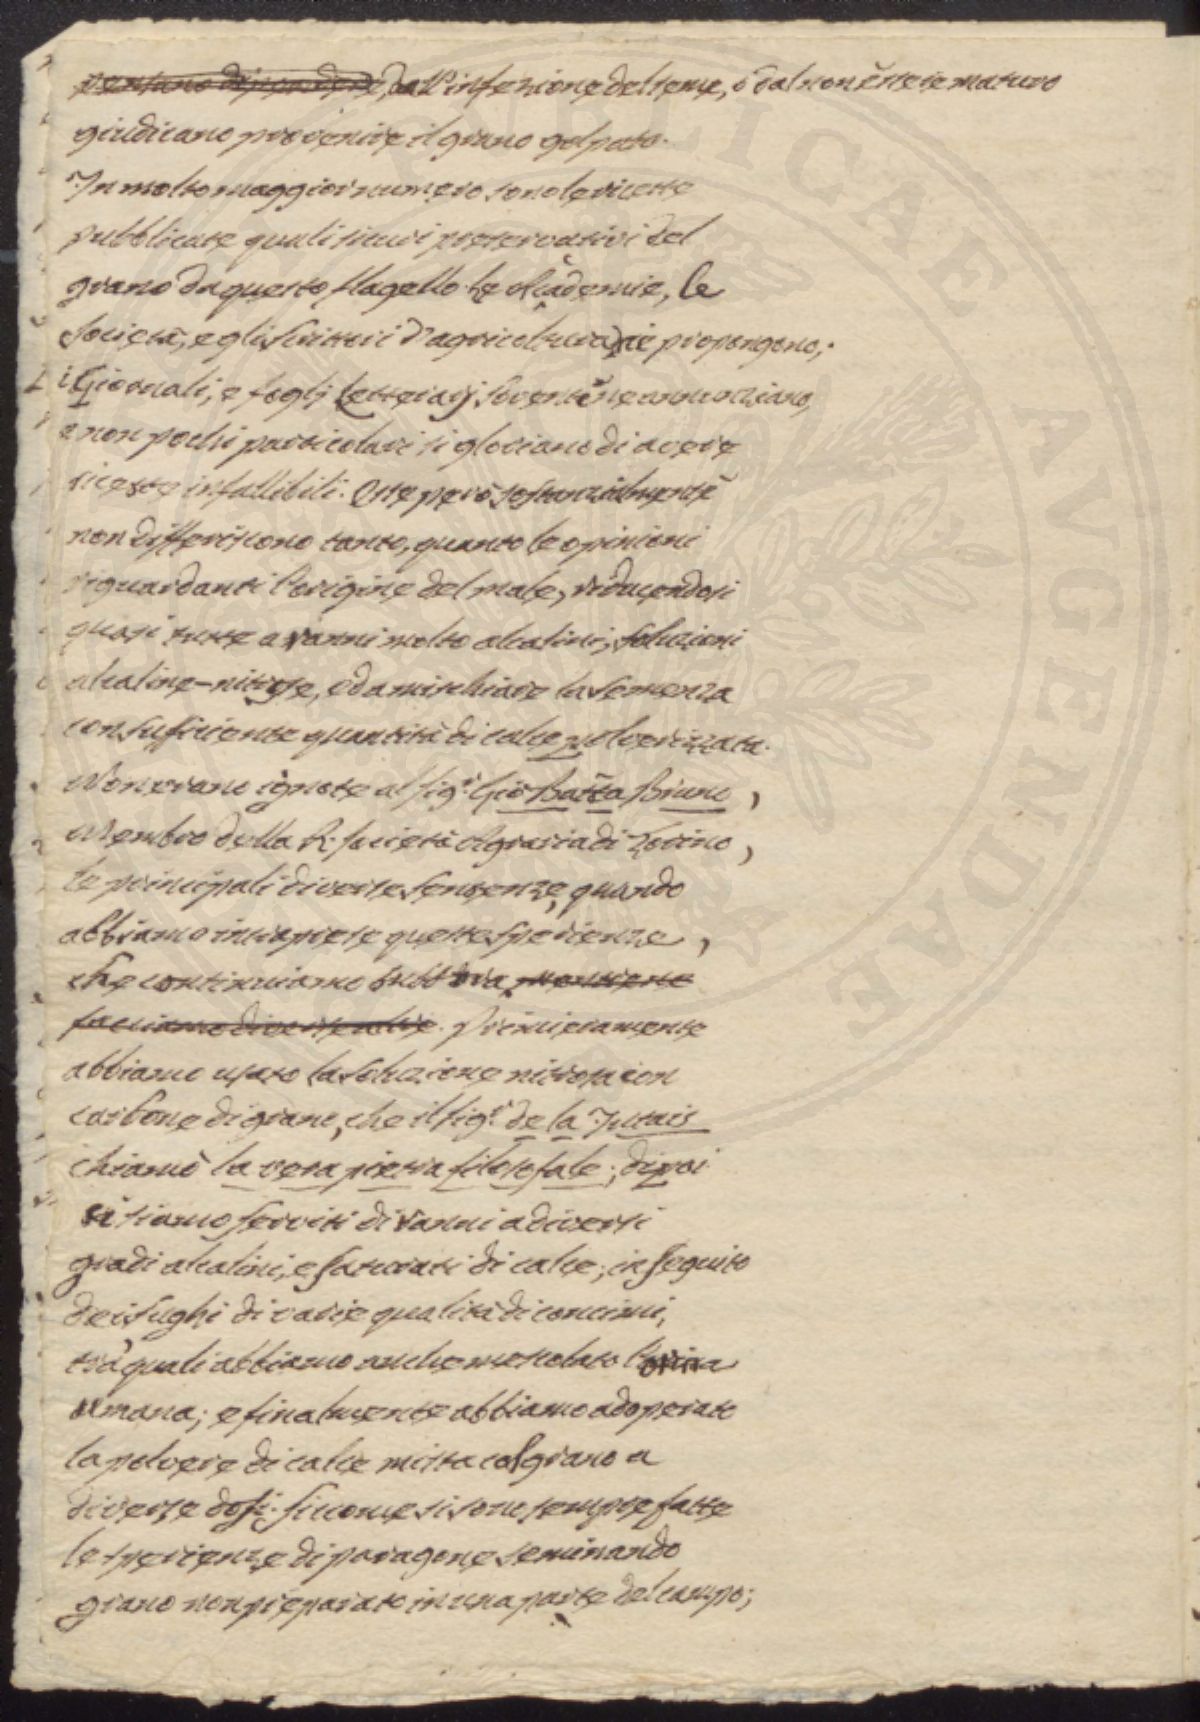 pensano discendere, dall'infezione del seme, ó dal non ésser maturo
giudicano provenire il grano golpato.
In molto maggior numero sono le ricette
pubblicate quali sicuri preservativi del
grano da questo flagello. Le Accademie, le
Società, e gli scrittori d'agricoltura ne propongono;
i Giornali, e foglj letterarj sovente ne annunziano,
e non pochi particolari si gloriano di avere
ricette infallibili. Esse però sostanzialmente
non differiscono tanto, quanto le opinioni
riguardanti l'origine del male, riducendosi
quasi tutte a ranni molto alcalini, soluzioni
alcaline-nitrose, ed a mischiare la semenza
con sufficiente quantità di calce polverizzata.
Non erano ignote al sig.r Gio Batta Bruno,
Membro della R. Società Agraria di Torino,
le principali diverse sentenze, quando
abbiamo intraprese queste sperienze,
che continuiamo tutt'ora, mentre ne
facciamo diverse altre. Primieramente
abbiamo usato la soluzione nitrosa con
carbone di grano, che il sig.r de la Jutais
chiamò la vera pietra filosofale; di poi
si siamo serviti di ranni a diversi
gradi alcalini, e saturati di calce; in seguito
dei sughi di varie qualità di concimi,
trà quali abbiamo anche mescolato l'orina
umana; e finalmente abbiamo adoperato
la polvere di calce mista col grano a
diverse dosi. Siccome si sono sempre fatte
le sperienze di paragone seminando
grano non preparato in una parte del campo;
PVBLICAE AVGENDAE